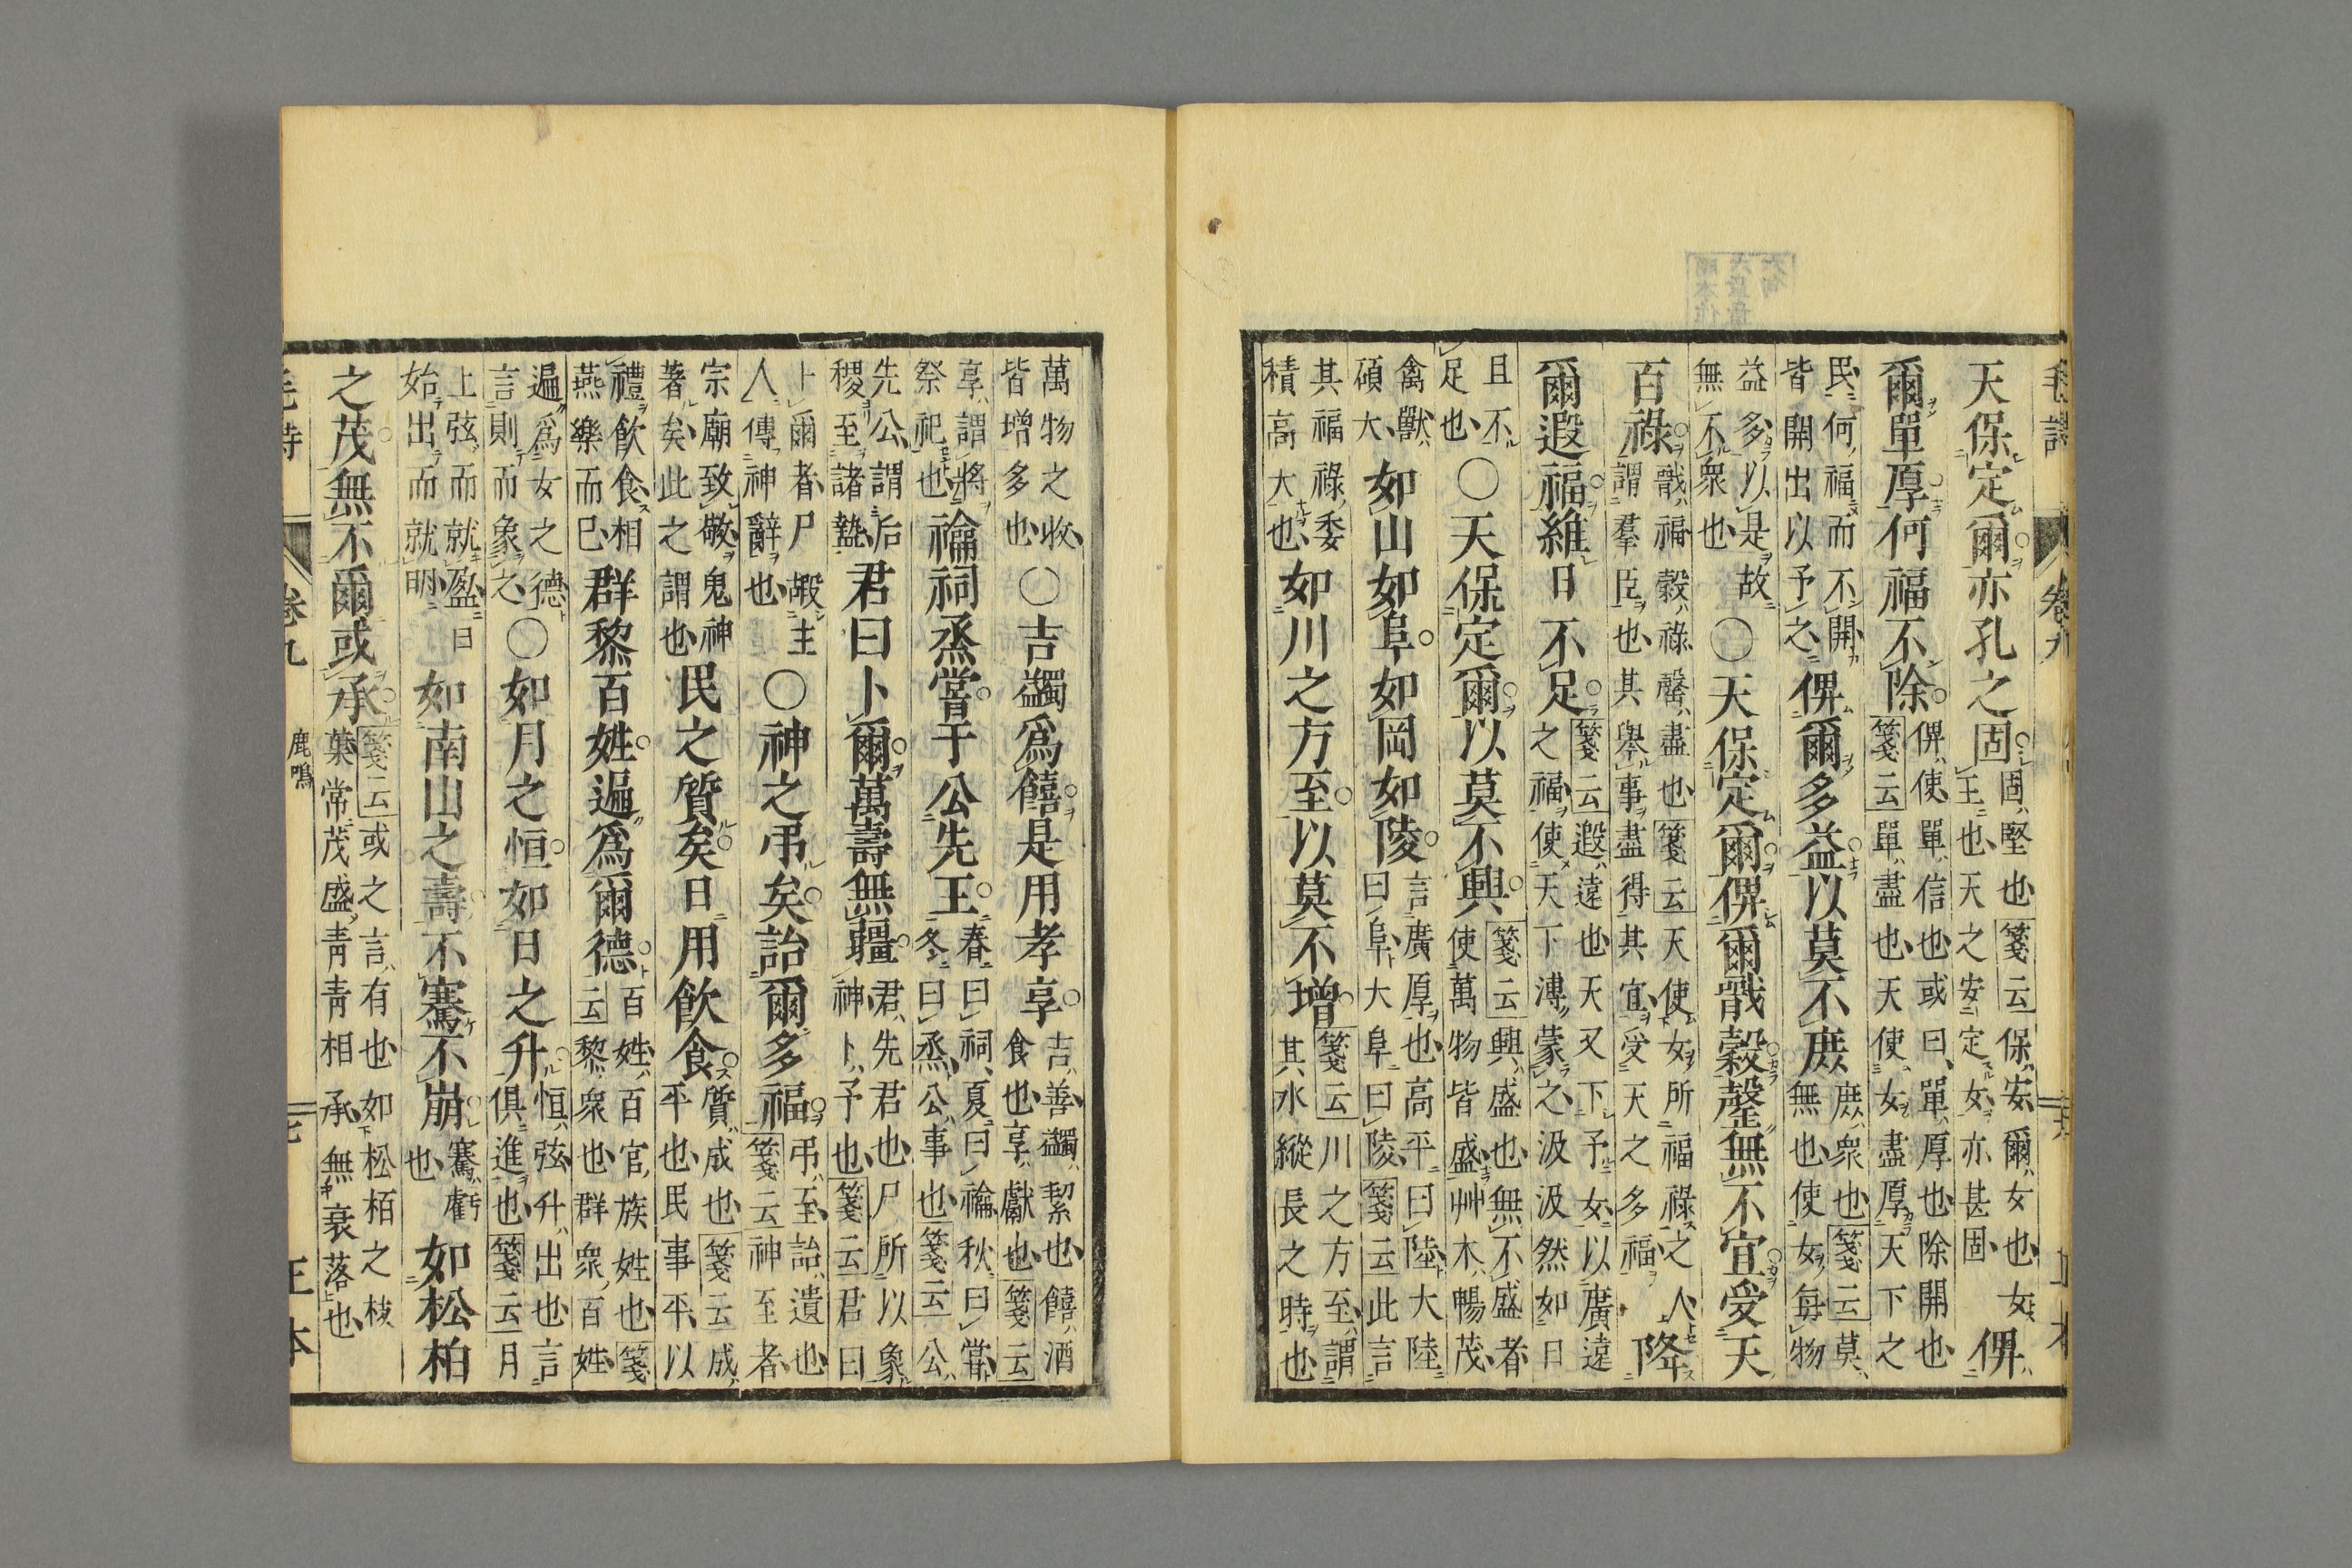 毛詩 卷九
天保定爾亦孔之固 固堅也箋云保安爾女也女 王也天之安定女亦甚固 俾
爾單厚何福不除 俾使單信也或曰單厚也除開也 箋云單盡也天使女盡厚天下之
民何福而不開 皆開出以予之 俾爾多益以莫不庶 庶衆也箋云莫 無也使女每物
益多以是故 無不衆也 〇天保定爾俾爾戩穀罄無不宜受天
百祿 戩福穀祿罄盡也箋云天使女所福祿之人 謂羣臣也其舉事盡得其宜受天之多福 降
爾遐福維日不足 箋云遐遠也天又下予女以廣遠 之福使天下溥蒙之汲汲然如日
且不 足也 〇天保定爾以莫不興 箋云興盛也無不盛者 使萬物皆盛艸木暢茂
禽獸 碩大 如山如阜如岡如陵 言廣厚也高平曰陸大陸 曰阜大阜曰陵箋云此言
其福祿委 積高大也 如川之方至以莫不增 箋云川之方至謂 其水縱長之時也
萬物之收 皆增多也 〇吉蠲爲饎是用孝享 吉善蠲絜也饎酒 食也享獻也箋云
享謂將 祭祀也 禴祠烝嘗于公先王 春曰祠夏曰禴秋曰嘗 冬曰烝公事也箋云公
先公謂后 稷至諸盩 君曰卜爾萬壽無疆 君先君也尸所以象 神卜予也箋云君曰
卜爾者尸嘏主 人傳神辭也 〇神之弔矣詒爾多福 弔至詒遺也 箋云神至者
宗廟致敬鬼神 著矣此之謂也 民之質矣日用飲食 質成也箋云成 平也民事平以
禮飲食相 燕樂而已 群黎百姓遍爲爾德 百姓百官族姓也箋 云黎衆也群衆百姓
遍爲女之德 言則而象之 〇如月之恒如日之升 恒弦升出也言 俱進也箋云月
上弦而就盈日 始出而就明 如南山之壽不騫不崩 騫虧 也 如松柏
之茂無不爾或承 箋云或之言有也如松栢之枝 葉常茂盛青青相承無衰落也
毛詩 卷九 鹿鳴